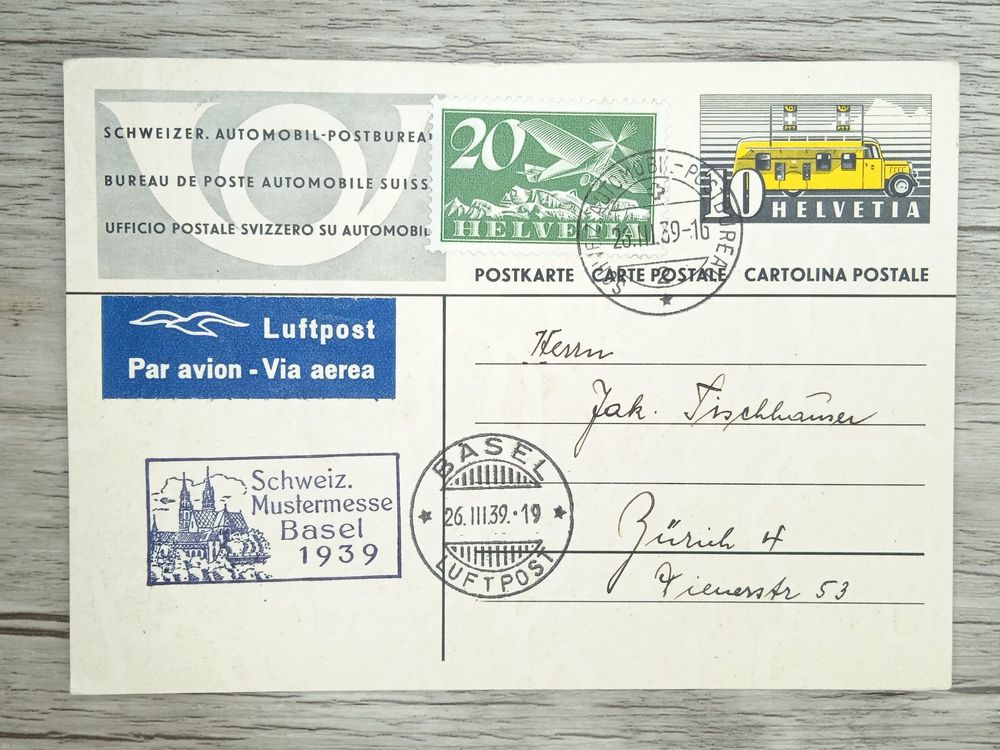 SCHWEIZER. AUTOMOBIL-POSTBUREA
BUREAU DE POSTE AUTOMOBILE SUISS
UFFICIO POSTALE SVIZZERO SU AUTOMOBIL
20
HELVETIA
PTT PTT
10 HELVETIA
SCHWEIZ. AUTOMOBIL-POSTBUREAU
26.III.39-16
2
POSTKARTE CARTE POSTALE CARTOLINA POSTALE
Luftpost
Par avion - Via aerea
Herrn
Jak. Tischhauser
Zürich 4
Wienerstr 53
Schweiz.
Mustermesse
Basel
1939
BASEL
26.III.39.-19
LUFTPOST